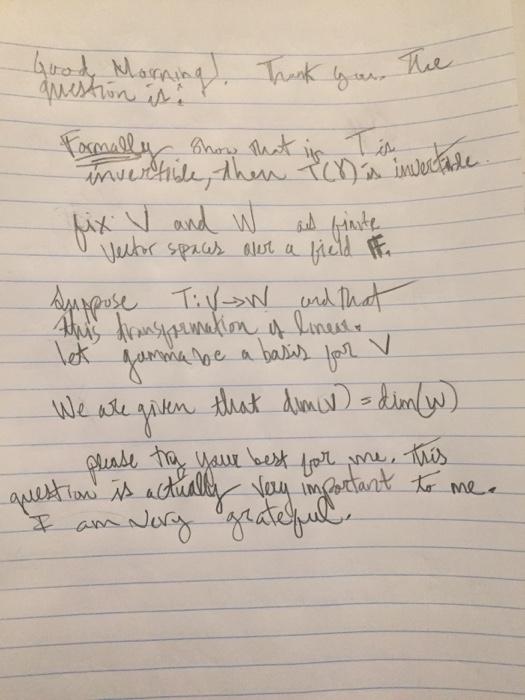 Good Morning! Thank you. The
question is:
Formally show that if T is
invertible, then T(γ) is invertible.
fix V and W as finite
vector spaces over a field F.
Suppose T:V→W and that
this transformation is linear.
let gamma be a basis for V
We are given that dim(V) = dim(W)
please try your best for me. this
question is actually very important to me.
I am very grateful.